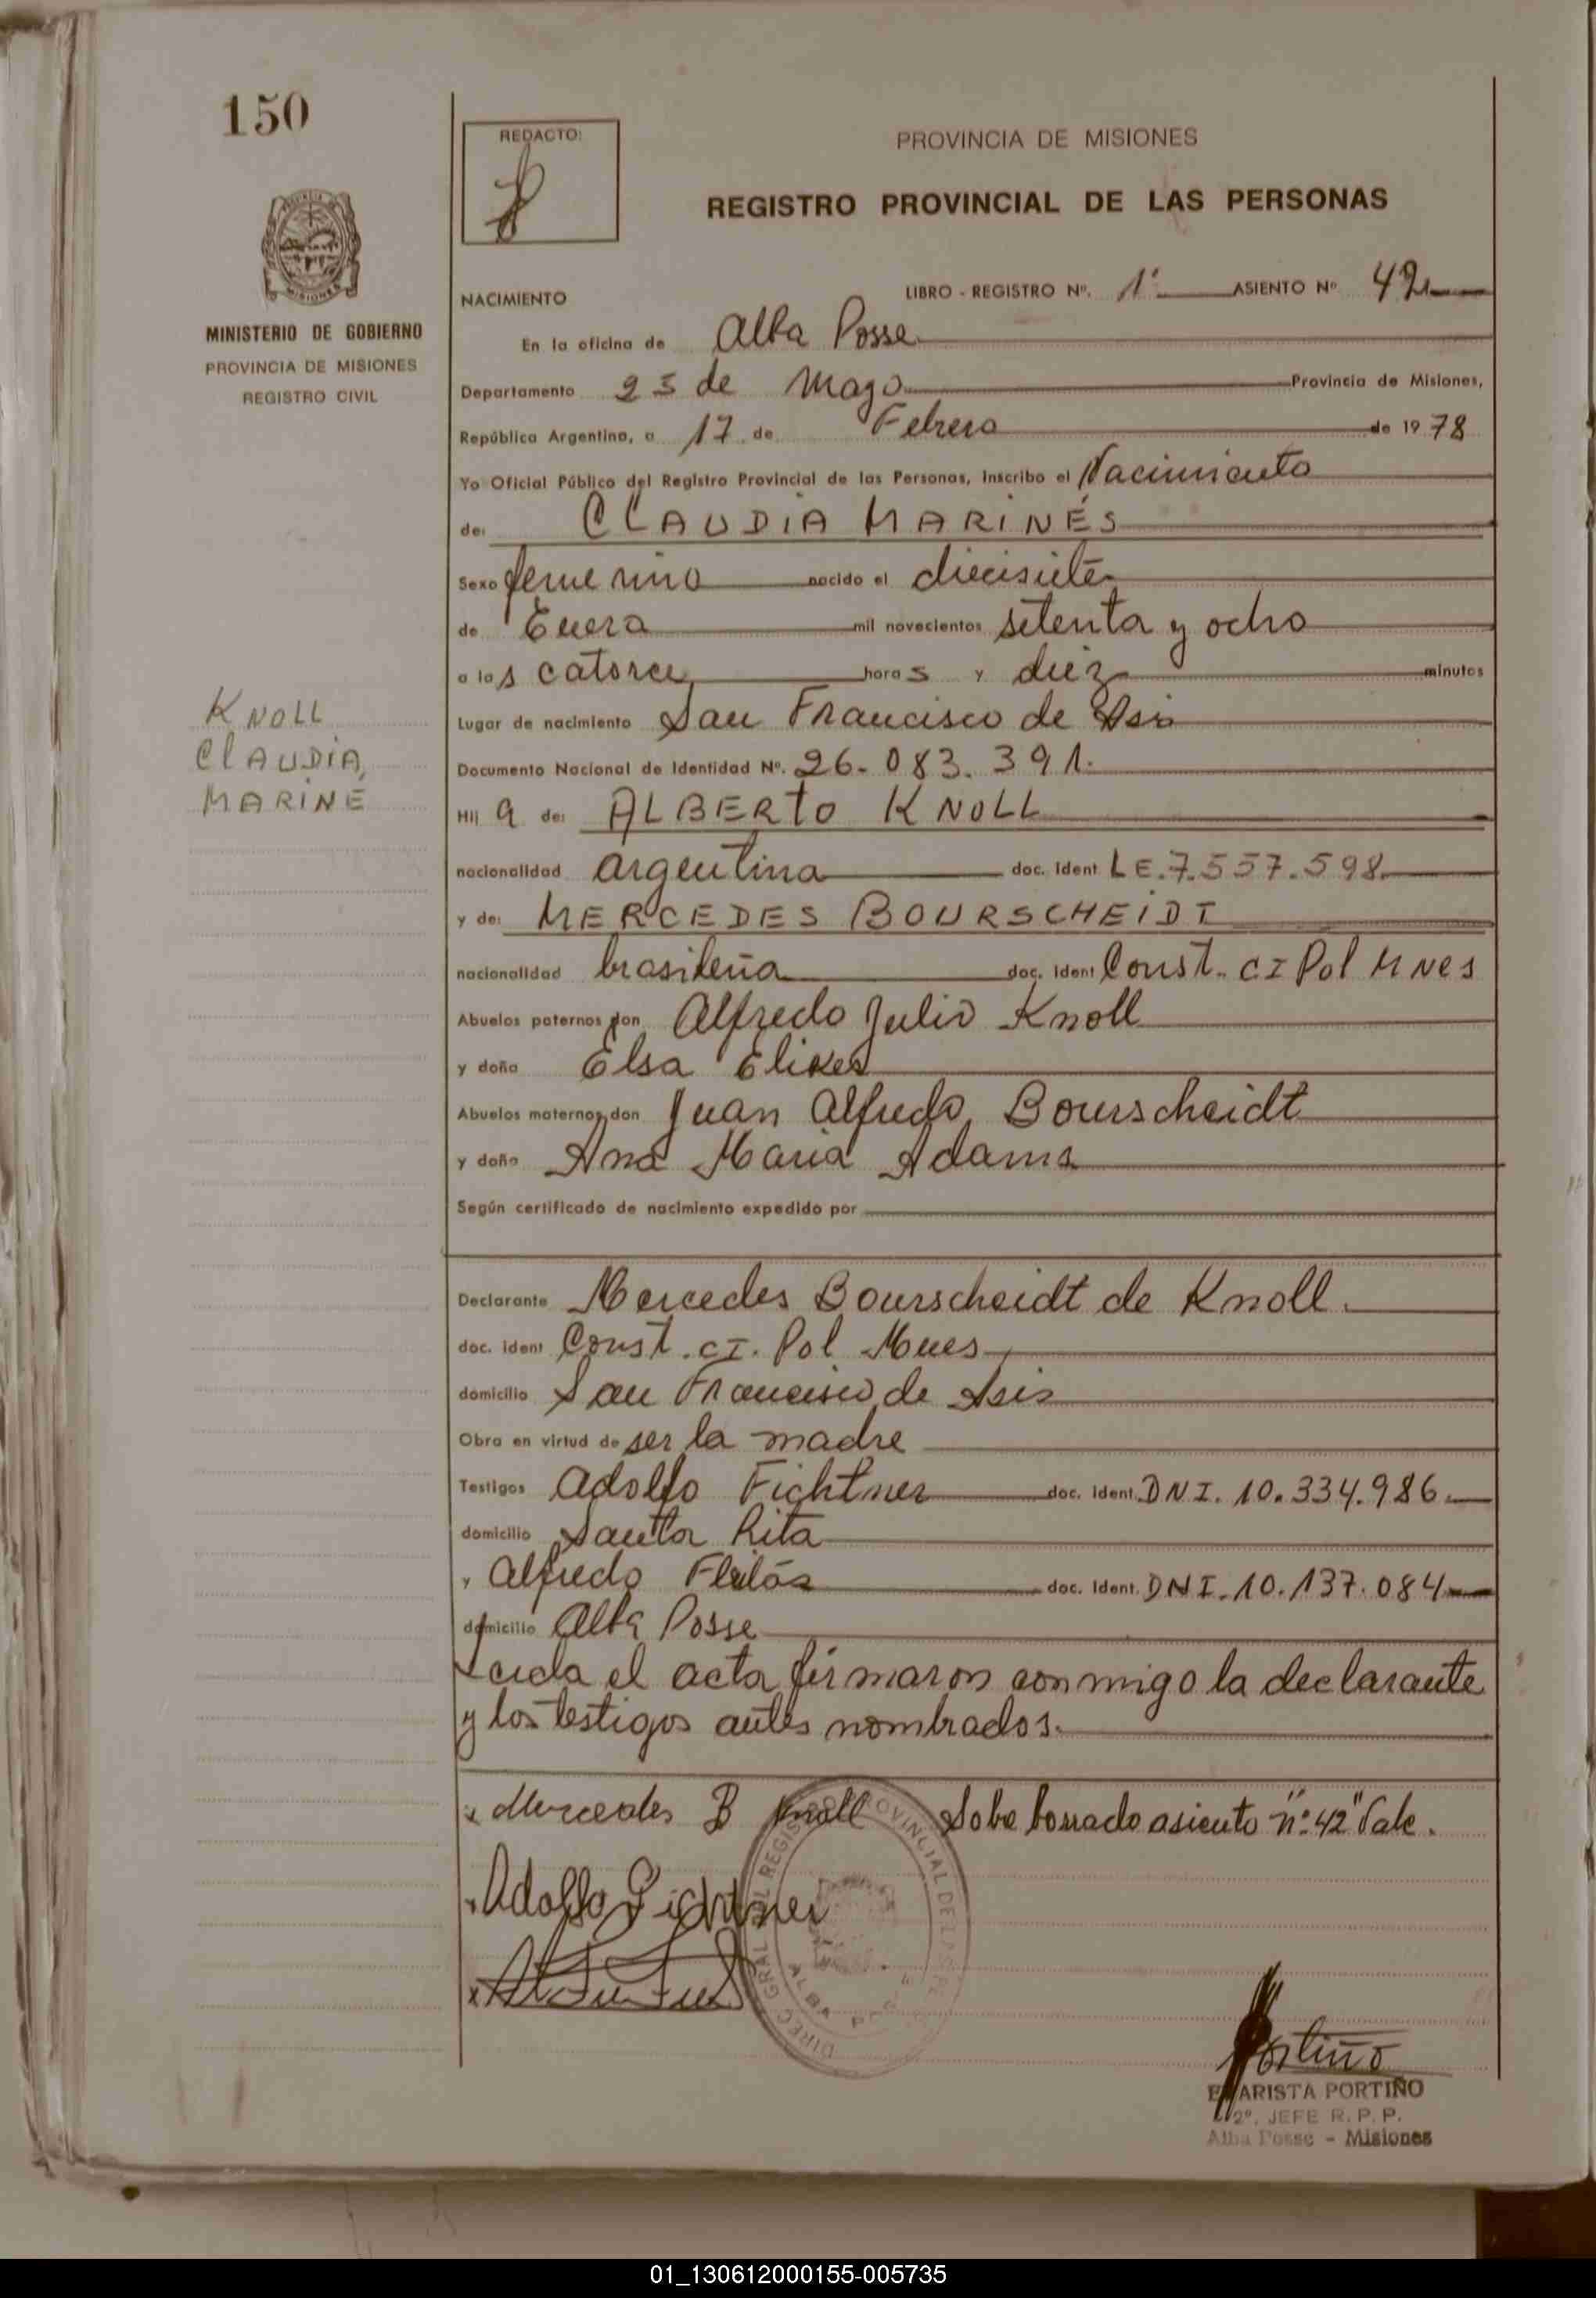 150
REDACTO:
PROVINCIA DE MISIONES
REGISTRO PROVINCIAL DE LAS PERSONAS
MISIONES
MINISTERIO DE GOBIERNO
PROVINCIA DE MISIONES
REGISTRO CIVIL
NACIMIENTO LIBRO - REGISTRO Nº. 1º ASIENTO Nº 42
En la oficina de Alba Posse
Departamento 25 de Mayo Provincia de Misiones,
República Argentina, a 17 de Febrero de 1978
Yo Oficial Público del Registro Provincial de las Personas, Inscribo el Nacimiento
de: CLAUDIA MARINÉS
Sexo femenino nacido el diecisiete
de Enero mil novecientos setenta y ocho
a las catorce horas y diez minutos
Lugar de nacimiento San Francisco de Asis
KNOLL
CLAUDIA,
MARINE
Documento Nacional de Identidad Nº. 26.083.391.
Hij a de: ALBERTO KNOLL
nacionalidad argentina doc. Ident LE.7.557.598
y de: MERCEDES BOURSCHEIDT
nacionalidad brasileña doc. Ident Const. CI Pol Mnes
Abuelos paternos don Alfredo Julio Knoll
y doña Elsa
Abuelos maternos don Juan Alfredo Bourscheidt
y doña Ana Maria Adams
Según certificado de nacimiento expedido por
Declarante Mercedes Bourscheidt de Knoll.
doc. ident Const. CI. Pol Mnes
domicilio San Francisco de Asis
Obra en virtud de ser la madre
Testigos Adolfo Fichtner doc. Ident. DNI. 10.334.986
domicilio Santa Rita
y Alfredo doc. Ident. DNI. 10.137.084
domicilio Alba Posse
Leida el acta firmaron conmigo la declarante
y los testigos antes nombrados.
x Mercedes B Knoll Sobre borrado asiento "nº 42" Vale.
Adolfo Fichtner
DIREC. GRAL DEL REGISTRO PROVINCIAL DE LAS
ALBA POSSE
Portiño
EVARISTA PORTIÑO
2º. JEFE R. P. P.
Alba Posse - Misiones
01_130612000155-005735